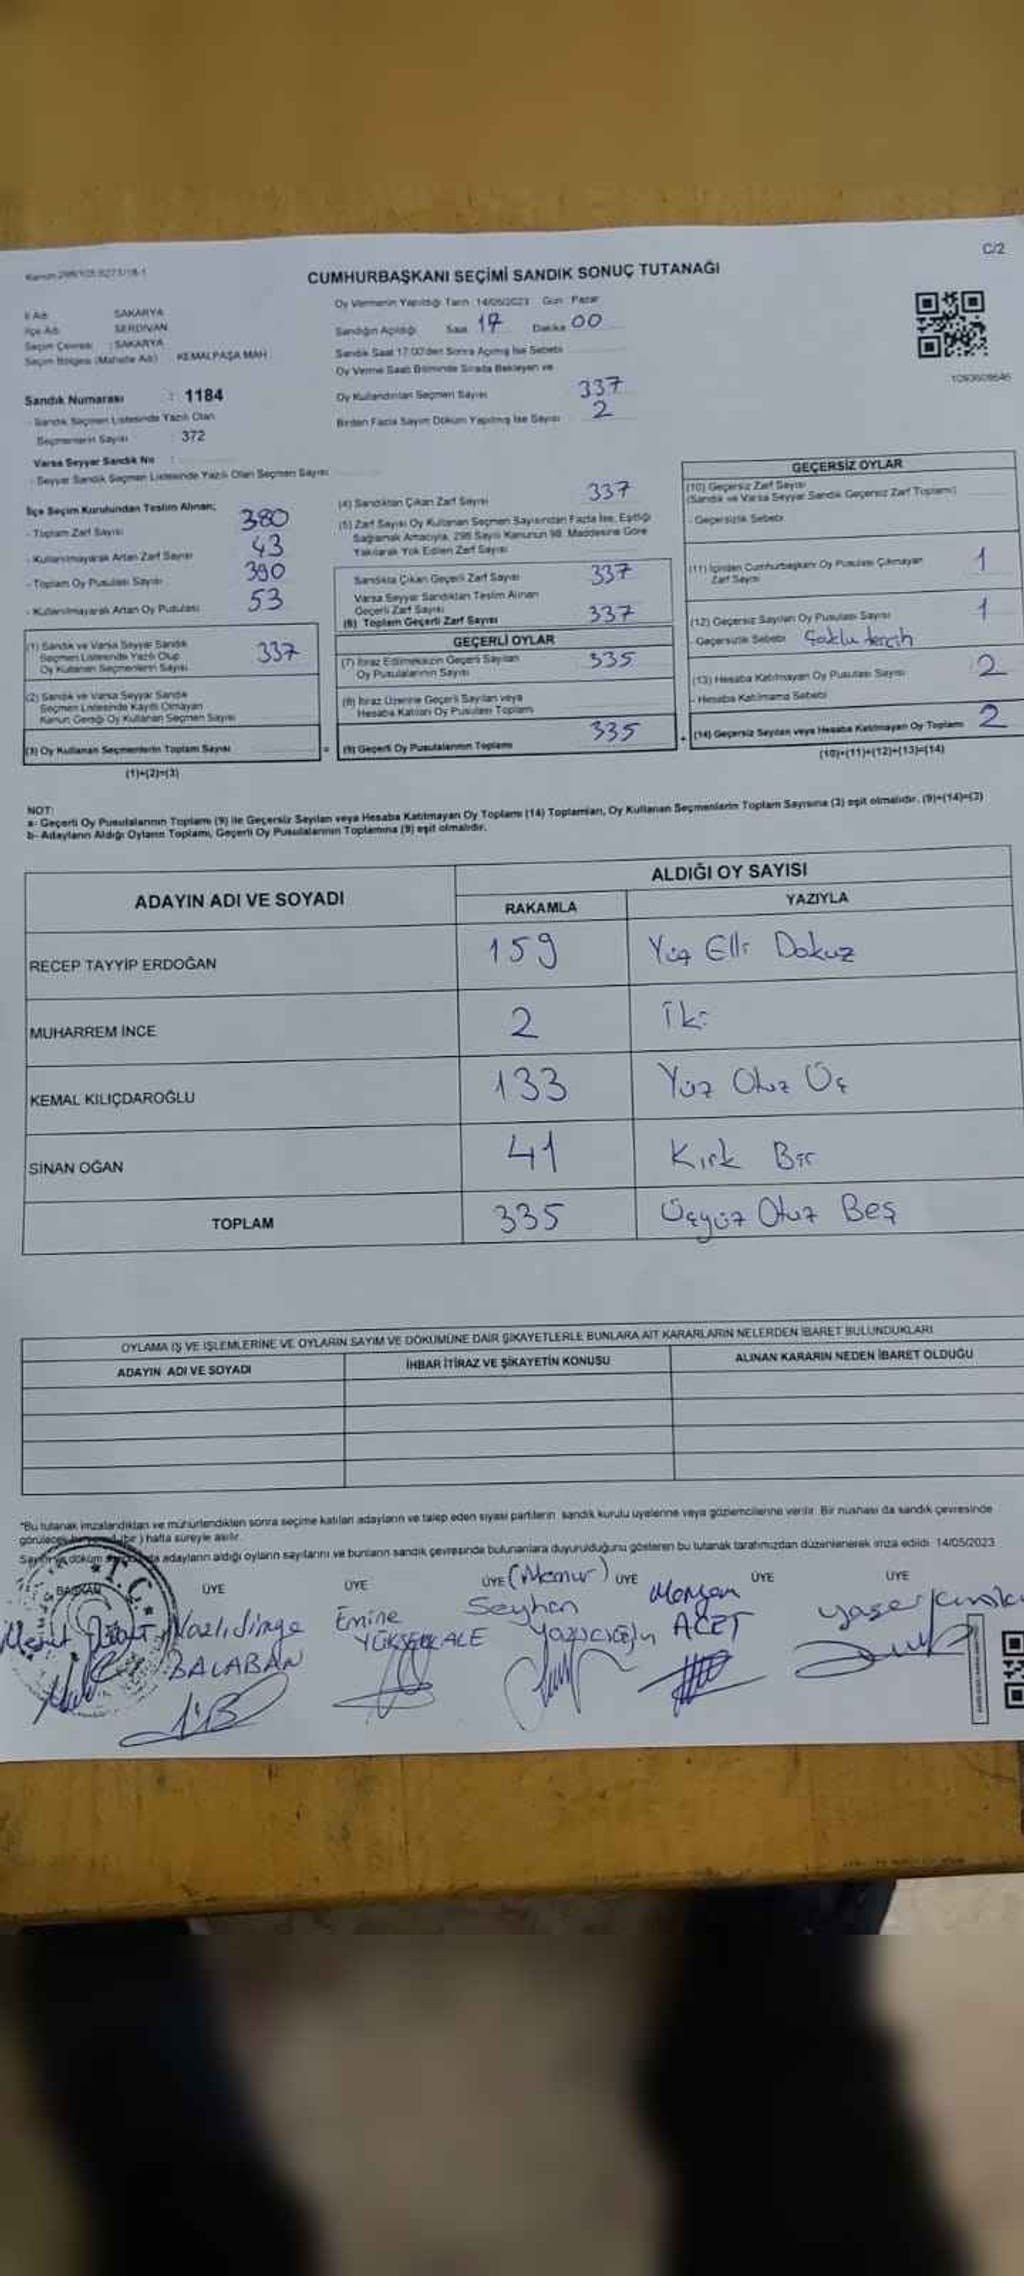 C/2
CUMHURBAŞKANI SEÇİMİ SANDIK SONUÇ TUTANAĞI
İl Adı : SAKARYA
İlçe Adı : SERDİVAN
Seçim Çevresi : SAKARYA
Seçim Bölgesi (Mahalle Adı) : KEMALPAŞA MAH.
Sandık Numarası : 1184
- Sandık Seçmen Listesinde Yazılı Olan
Seçmenlerin Sayısı : 372
Varsa Seyyar Sandık No :
- Seyyar Sandık Seçmen Listesinde Yazılı Olan Seçmen Sayısı
Oy Vermenin Yapıldığı Tarih : 14/05/2023 Gün : Pazar
Sandığın Açıldığı Saat 17 Dakika 00
Sandık Saat 17:00'den Sonra Açılmış İse Sebebi
Oy Verme Saati Bitiminde Sırada Bekleyen ve
Oy Kullandırılan Seçmen Sayısı 337
Birden Fazla Sayım Döküm Yapılmış İse Sayısı 2
İlçe Seçim Kurulundan Teslim Alınan;
- Toplam Zarf Sayısı 380
- Kullanılmayarak Artan Zarf Sayısı 43
- Toplam Oy Pusulası Sayısı 390
- Kullanılmayarak Artan Oy Pusulası 53
(1) Sandık ve Varsa Seyyar Sandık
Seçmen Listesinde Yazılı Olup
Oy Kullanan Seçmenlerin Sayısı 337
(2) Sandık ve Varsa Seyyar Sandık
Seçmen Listesinde Kayıtlı Olmayan
Kanun Gereği Oy Kullanan Seçmen Sayısı
(3) Oy Kullanan Seçmenlerin Toplam Sayısı
(1)+(2)=(3)
(4) Sandıktan Çıkan Zarf Sayısı 337
(5) Zarf Sayısı Oy Kullanan Seçmen Sayısından Fazla İse, Eşitliği
Sağlamak Amacıyla, 298 Sayılı Kanunun 98. Maddesine Göre
Yakılarak Yok Edilen Zarf Sayısı
Sandıkta Çıkan Geçerli Zarf Sayısı 337
Varsa Seyyar Sandıktan Teslim Alınan
Geçerli Zarf Sayısı
(6) Toplam Geçerli Zarf Sayısı 337
GEÇERLİ OYLAR
(7) İtiraz Edilmeksizin Geçerli Sayılan
Oy Pusulalarının Sayısı 335
(8) İtiraz Üzerine Geçerli Sayılan veya
Hesaba Katılan Oy Pusulası Toplamı
= (9) Geçerli Oy Pusulalarının Toplamı 335
GEÇERSİZ OYLAR
(10) Geçersiz Zarf Sayısı
(Sandık ve Varsa Seyyar Sandık Geçersiz Zarf Toplamı)
- Geçersizlik Sebebi
(11) İçinden Cumhurbaşkanı Oy Pusulası Çıkmayan
Zarf Sayısı 1
(12) Geçersiz Sayılan Oy Pusulası Sayısı 1
- Geçersizlik Sebebi
(13) Hesaba Katılmayan Oy Pusulası Sayısı 2
- Hesaba Katılmama Sebebi
+ (14) Geçersiz Sayılan veya Hesaba Katılmayan Oy Toplamı 2
(10)+(11)+(12)+(13)=(14)
NOT:
a- Geçerli Oy Pusulalarının Toplamı (9) ile Geçersiz Sayılan veya Hesaba Katılmayan Oy Toplamı (14) Toplamları, Oy Kullanan Seçmenlerin Toplam Sayısına (3) eşit olmalıdır. (9)+(14)=(3)
b- Adayların Aldığı Oyların Toplamı, Geçerli Oy Pusulalarının Toplamına (9) eşit olmalıdır.
ADAYIN ADI VE SOYADI
ALDIĞI OY SAYISI
RAKAMLA YAZIYLA
RECEP TAYYİP ERDOĞAN 159 Yüz Elli Dokuz
MUHARREM İNCE 2 İki
KEMAL KILIÇDAROĞLU 133 Yüz Otuz Üç
SİNAN OĞAN 41 Kırk Bir
TOPLAM 335 Üçyüz Otuz Beş
OYLAMA İŞ VE İŞLEMLERİNE VE OYLARIN SAYIM VE DÖKÜMÜNE DAİR ŞİKAYETLERLE BUNLARA AİT KARARLARIN NELERDEN İBARET BULUNDUKLARI
ADAYIN ADI VE SOYADI İHBAR İTİRAZ VE ŞİKAYETİN KONUSU ALINAN KARARIN NEDEN İBARET OLDUĞU
*Bu tutanak imzalandıktan ve mühürlendikten sonra seçime katılan adayların ve talep eden siyasi partilerin sandık kurulu üyelerine veya gözlemcilerine verilir. Bir nüshası da sandık çevresinde
hafta süreyle asılır.
adayların aldığı oyların sayılarını ve bunların sandık çevresinde bulunanlara duyurulduğunu gösteren bu tutanak tarafımızdan düzenlenerek imza edildi. 14/05/2023
BAŞKAN ÜYE ÜYE ÜYE (Memur) ÜYE ÜYE ÜYE
T.C.
BALABAN
Emine YÜKSEKKALE
Seyhan Yazıcıoğlu
ACET
Yaser